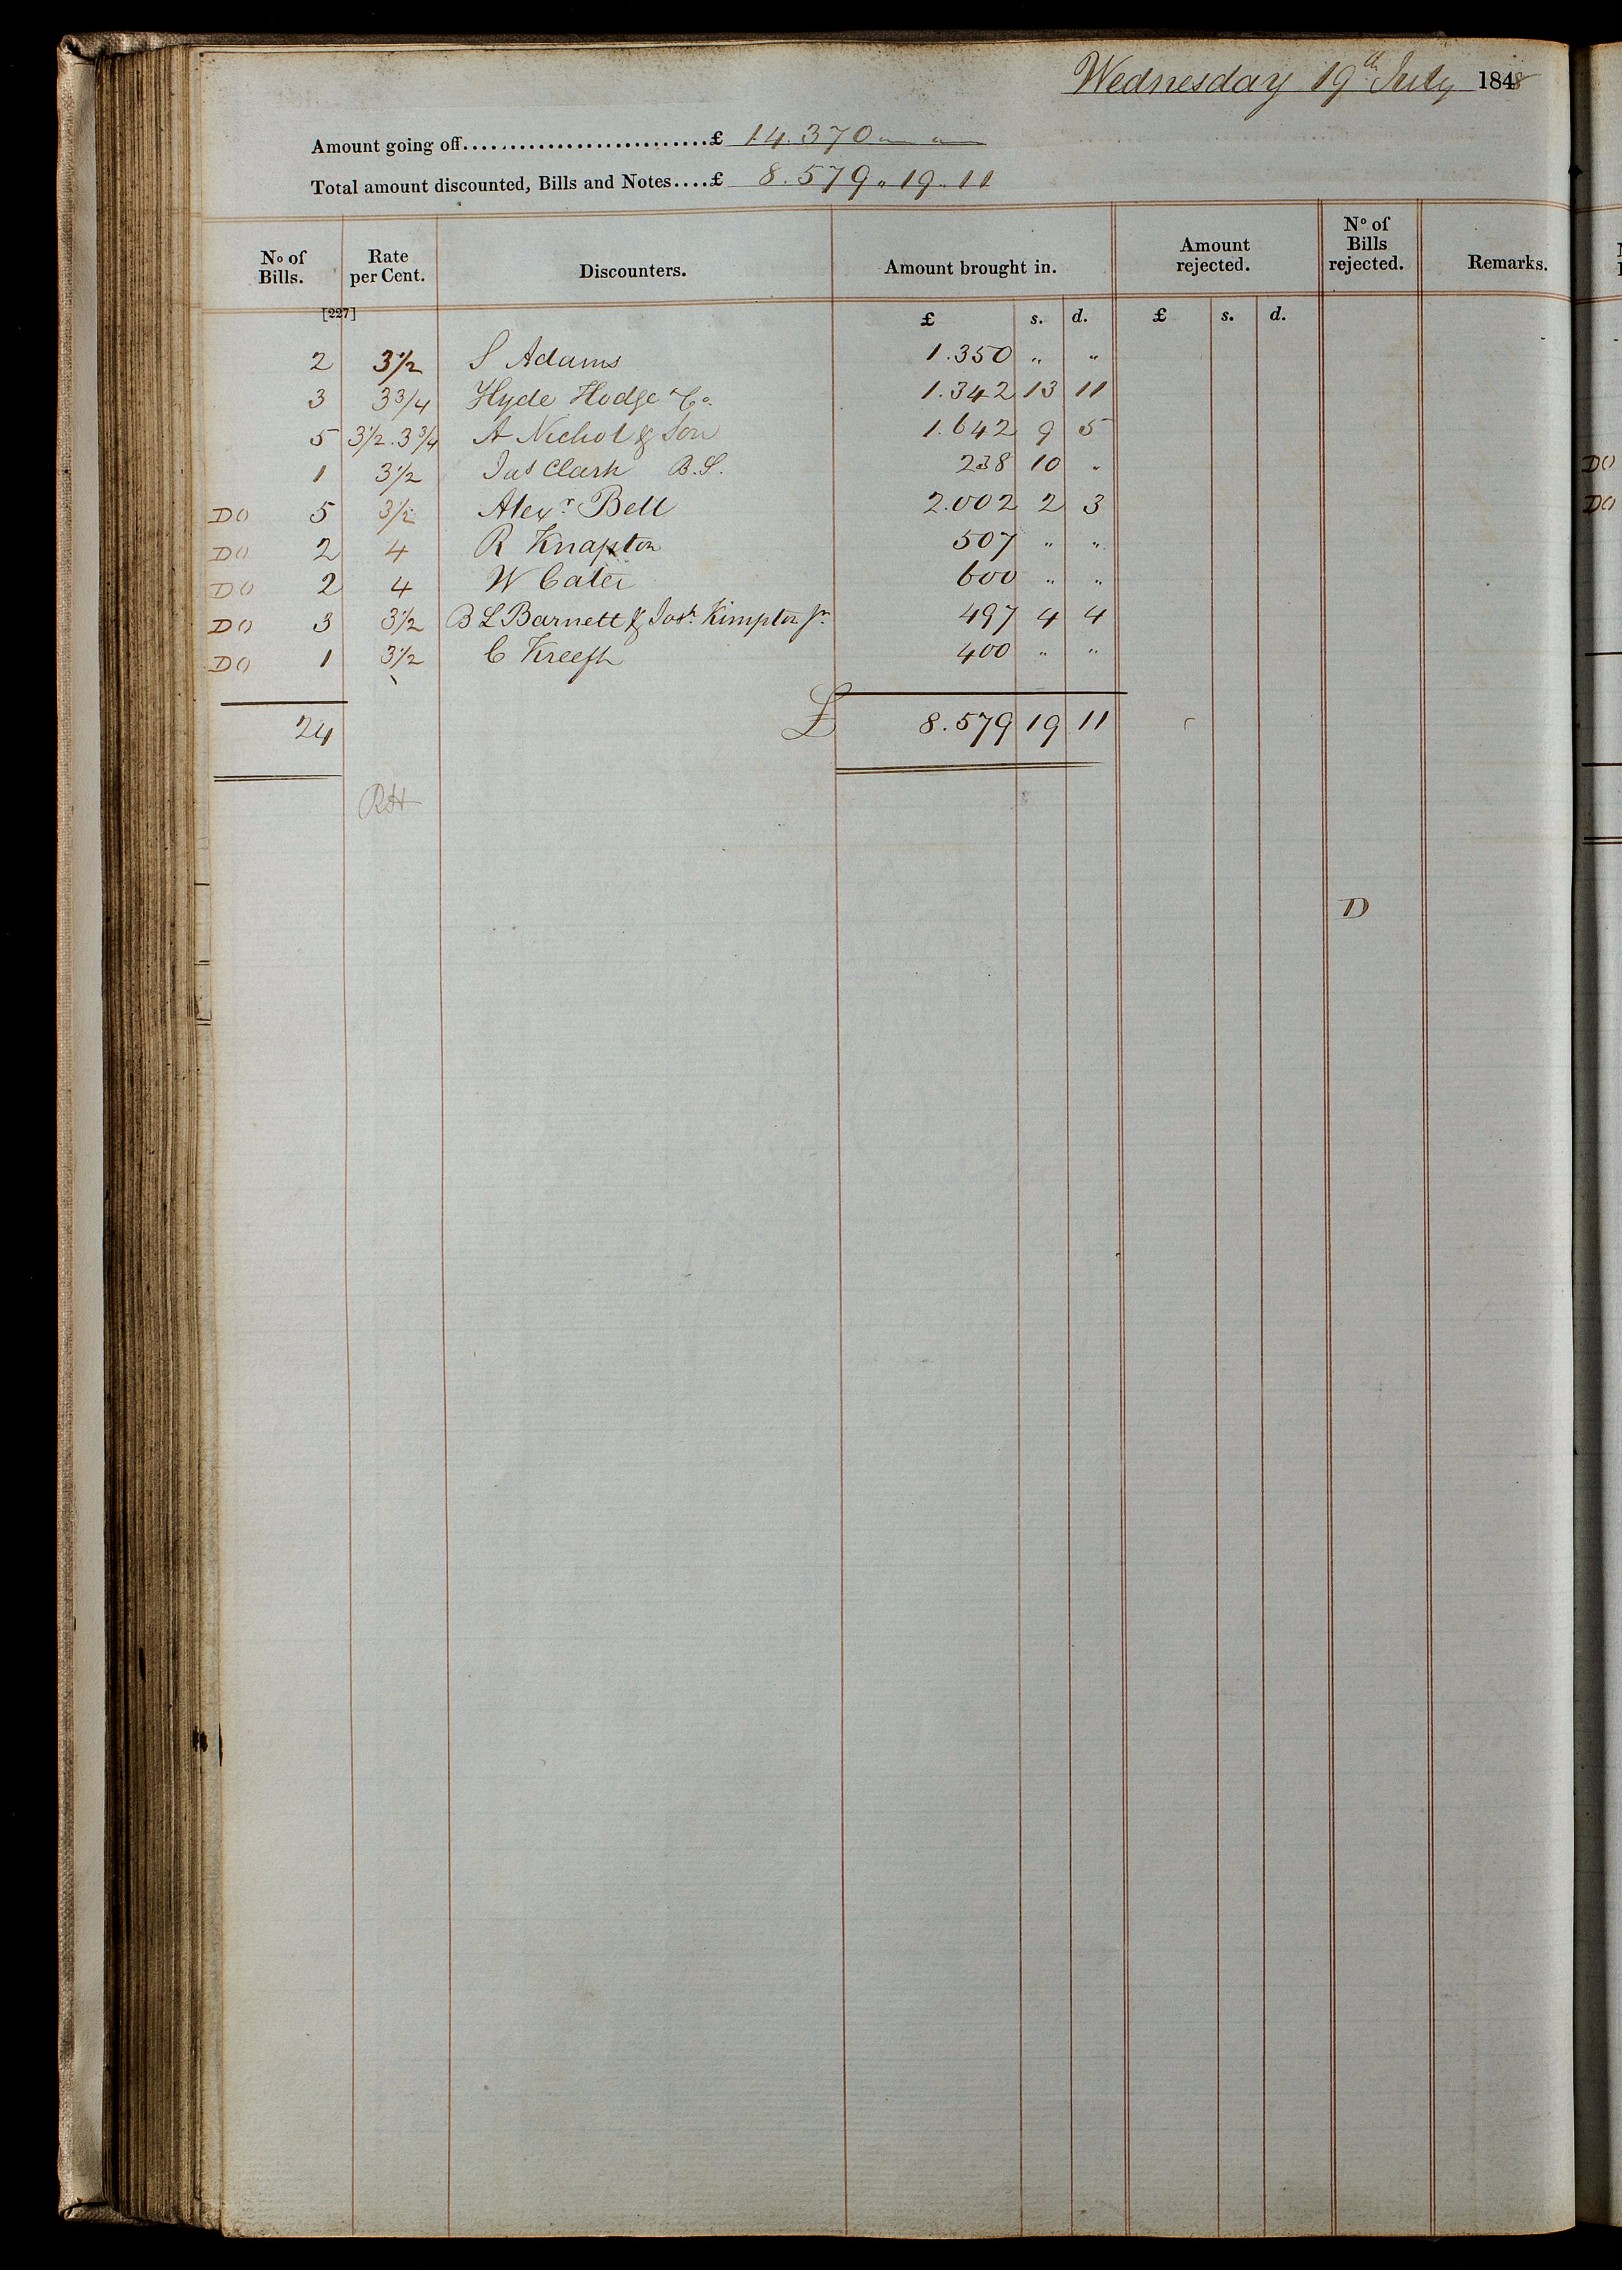 Wednesday 19th July 1848
Amount going off..........................£ 14.370 " "
Total amount discounted, Bills and Notes....£ 8.579 " 19 " 11
No of Bills. Rate per Cent. Discounters. Amount brought in. Amount rejected. No of Bills rejected. Remarks.
[227] £ s. d. £ s. d.
2 3½ S Adams 1.350 " "
3 3¾ Hyde Hodge & Co. 1.342 13 11
5 3½. 3¾ A Nichol & Son 1.642 9 5
1 3½ Jas Clark B.S. 238 10 "
DO 5 3½ Alexr Bell 2.002 2 3
DO 2 4 R Knapton 507 " "
DO 2 4 W Cater 600 " "
DO 3 3½ B L Barnett & Josh. Kimpton Jn. 497 4 4
DO 1 3½ C 400 " "
24 £ 8.579 19 11
RH
D
DO
DO